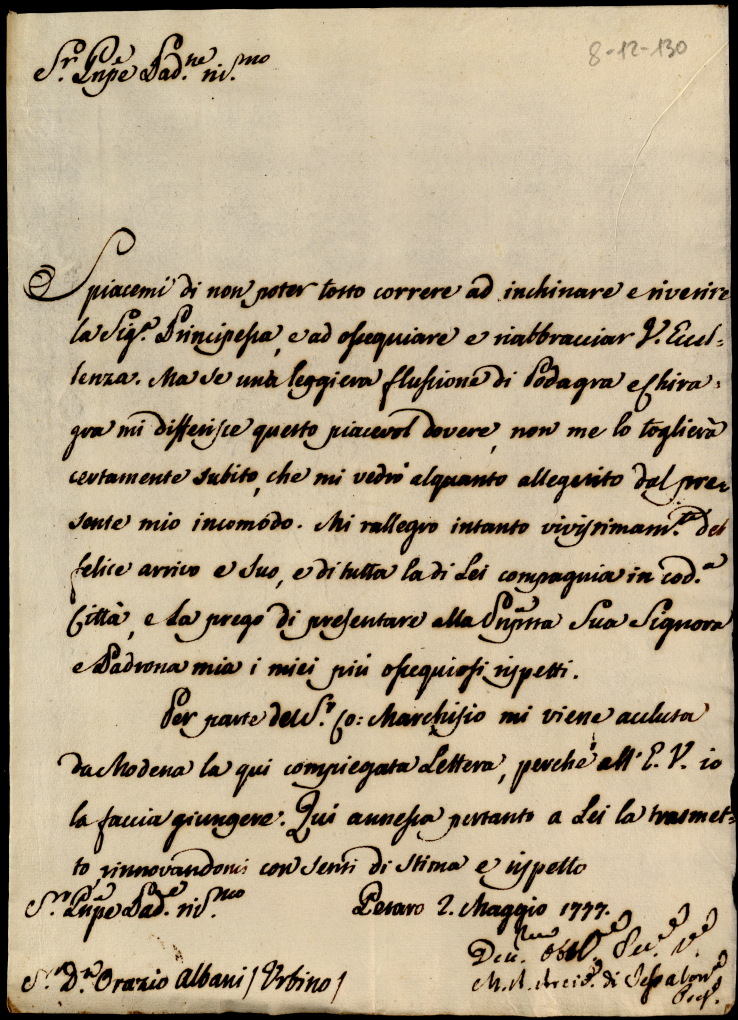 8-12-130
S.r Pnpe Pad.ne riv.mo
Spiacemi di non poter tosto correre ad inchinare e riverire
la Sig.a Principessa, e ad ossequiare e riabbracciar V. Eccel-
lenza. Ma se una leggiera flussione di Podagra e Chira-
gra mi differisce questo piacevol dovere, non me lo toglierà
certamente subito, che mi vedrò alquanto allegerito dal pre-
sente mio incomodo. Mi rallegro intanto vivissimam.te del
felice arrivo e suo, e di tutta la di Lei compagnia in cod.a
Città, e La prego di presentare alla Pnpssa Sua Signora
e Padrona mia i miei più ossequiosi rispetti.
Per parte del S.r Co: Marchisio mi viene acclusa
da Modena la qui compiegata Lettera, perchè all' E. V. io
la faccia giungere. Qui annessa pertanto a Lei la trasmet-
to rinnovandomi con sensi di stima e rispetto
S.r Pnpe Pad.ne riv.mo
Pesaro 2. Maggio 1777.
S.r D.n Orazio Albani / Urbino /
Dev.mo Obbl.mo
M. A. di